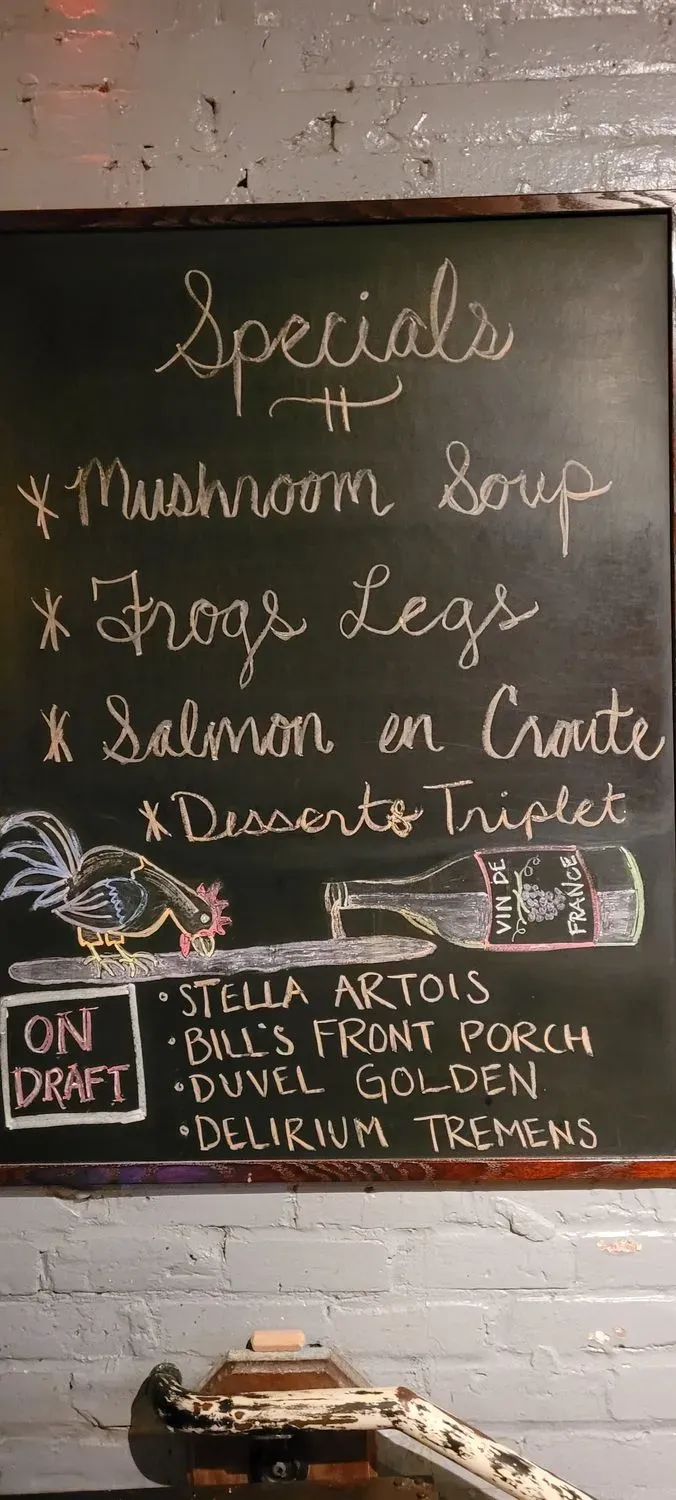 Specials
* Mushroom Soup
* Frogs Legs
* Salmon en Croute
* Desserts Triplet
VIN DE FRANCE
ON DRAFT
• STELLA ARTOIS
• BILL'S FRONT PORCH
• DUVEL GOLDEN
• DELIRIUM TREMENS